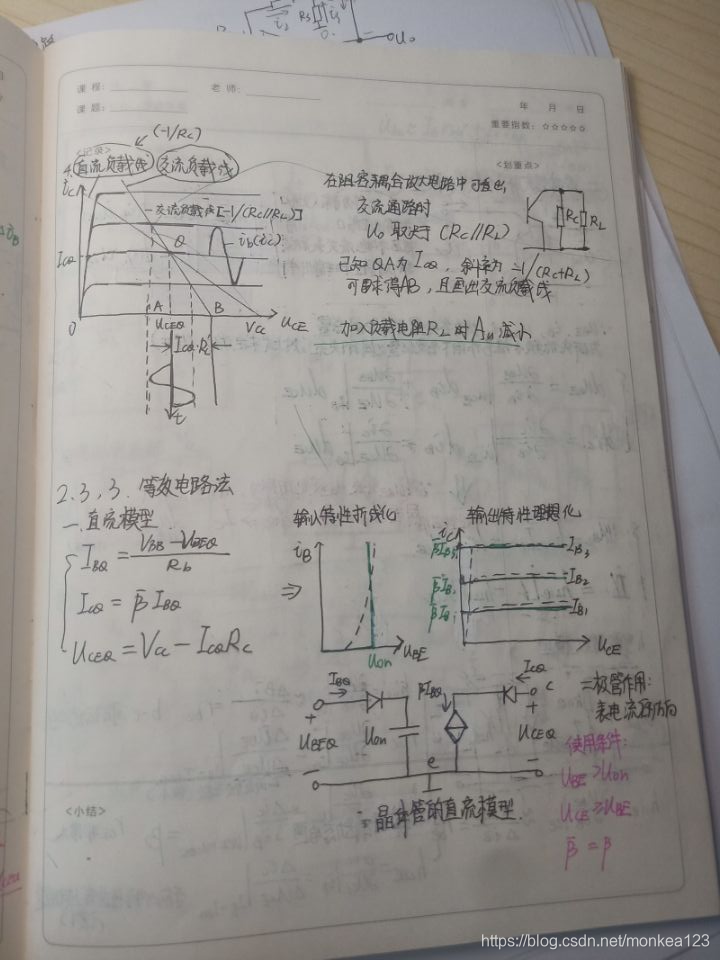 课程:
老师:
课题:
年 月 日
重要指数: ☆☆☆☆☆
<记录>
<划重点>
(-1/Rc)
4. 直流负载线 交流负载线
ic
交流负载线[-1/(Rc//RL)]
Q
ib(ic)
ICQ
0
A
B
UCEQ
Vcc
UCE
ICQ·R'L
t
在阻容耦合放大电路中可看出,
交流通路时
Uo 取决于 (Rc//RL)
Rc
RL
已知QA为ICQ, 斜率为 -1/(Rc+RL)
可求得AB, 且画出交流负载线
加入负载电阻RL时Au减小
2.3.3. 等效电路法
一.直流模型
IBQ = (VBB - UBEQ)/Rb
ICQ = β̄ IBQ
UCEQ = Vcc - ICQRc
⇒
输入特性折线化
iB
Uon
UBE
输出特性理想化
ic
β̄IB3
β̄IB2
β̄IB1
IB3
IB2
IB1
UCE
IBQ
+
UBEQ
-
Uon
β̄IBQ
ICQ
c
+
UCEQ
-
e
二极管作用:
表电流方向
使用条件:
UBE > Uon
UCE ≥ UBE
β̄ = β
∴ 晶体管的直流模型
<小结>
https://blog.csdn.net/monkea123